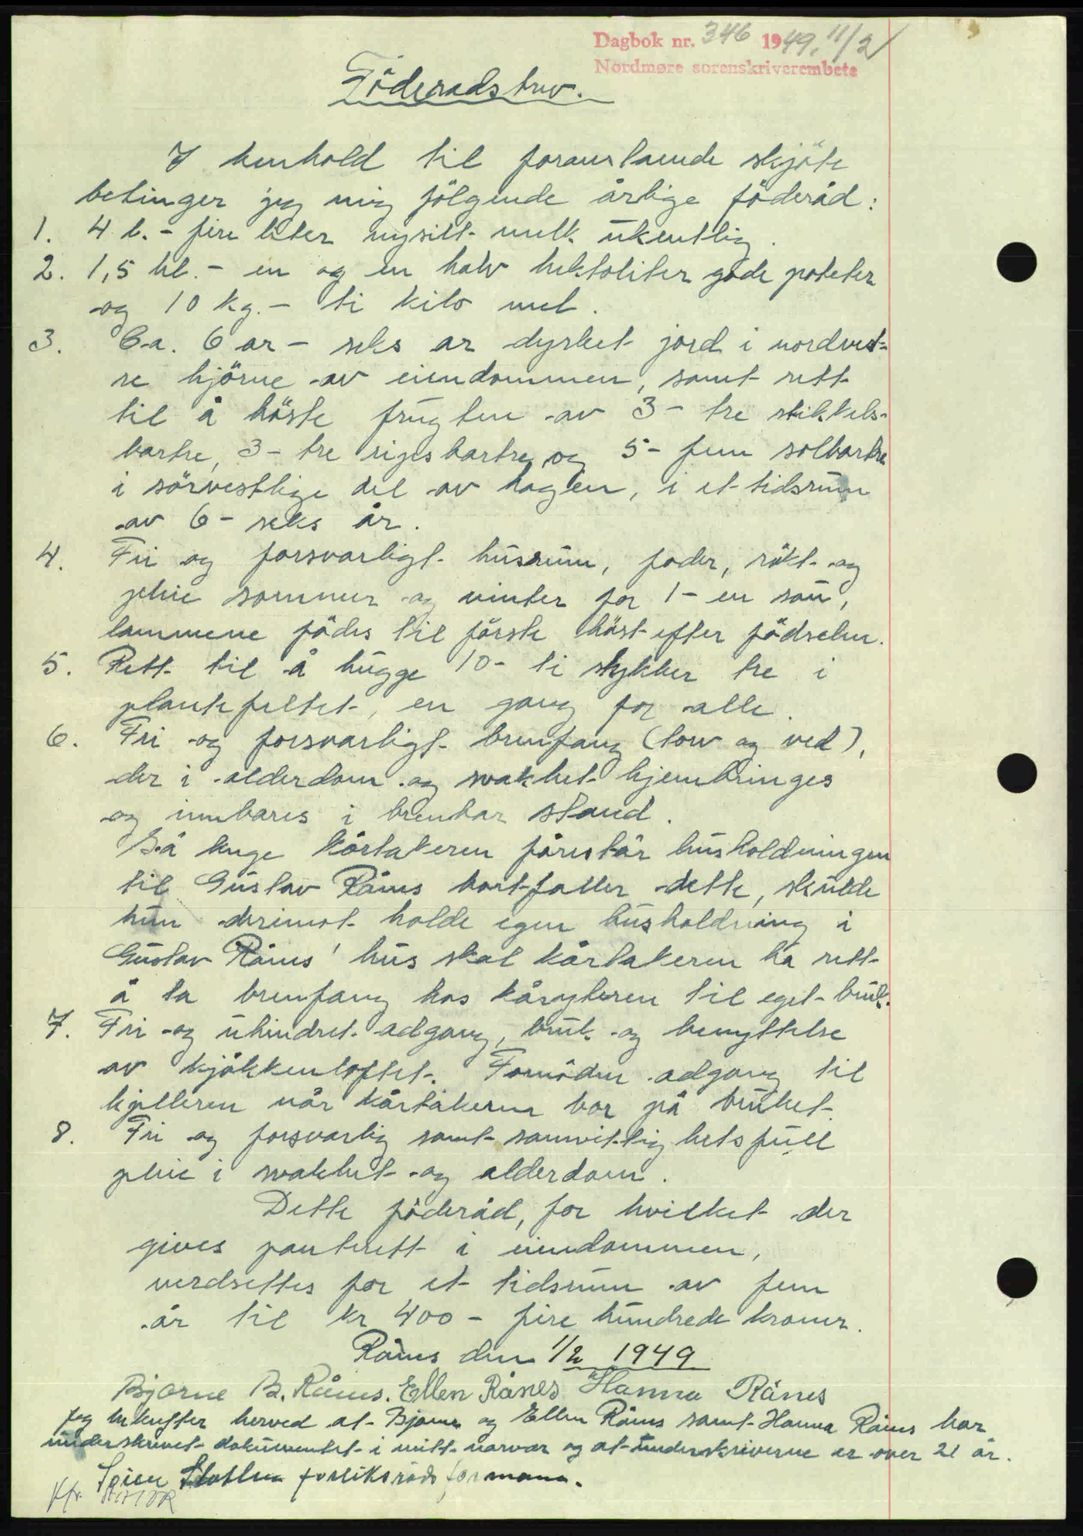 Dagbok nr. 346 1949, 11/2
Nordmøre sorenskriverembete
Föderådsbrev.
I henhold til foranstående skjöte
betinger jeg mig fölgende årlige föderåd:
1. 4 l. - fire liter nysilt melk ukentlig.
2. 1,5 hl. - en og en halv hektoliter gode poteter
og 10 kg. - ti kilo mel.
3. Ca. 6 ar - seks ar dyrket jord i nordvest-
re hjörne av eiendommen, samt rett
til å höste frugten av 3 - tre stikkels-
bærtre, 3 - tre ripsbærtre, og 5 - fem solbærtre
i sörvestlige del av hagen, i et tidsrum
av 6 - seks år.
4. Fri og forsvarligt husrum, foder, rökt og
pleie sommer og vinter for 1 - en sau,
lammene födes til förste höst efter födselen.
5. Rett til å hugge 10 - ti stykker tre i
plantefeltet, en gang for alle.
6. Fri og forsvarligt brenfang (torv og ved),
der i alderdom og svakhet hjembringes
og innbæres i brenbar stand.
Så lenge kårtakeren förestår husholdningen
til Gustav Rånes bortfaller dette, skulde
hun derimot holde egen husholdning i
Gustav Rånes' hus skal kårtakeren ha rett
å ta brenfang hos kårgiveren til eget bruk.
7. Fri og uhindret adgang, bruk og benyttelse
av kjökkenloftet. Fornöden adgang til
kjelleren når kårtakeren bor på bruket.
8. Fri og forsvarlig samt samvittighetsfull
pleie i svakhet og alderdom.
Dette föderåd, for hvilket der
gives panterett i eiendommen,
verdsettes for et tidsrum av fem
år til kr 400 - fire hundrede kroner.
Rånes den 1/2 1949
Bjarne B. Rånes. Ellen Rånes Hanna Rånes
Jeg bekrefter herved at Bjarne og Ellen Rånes samt Hanna Rånes har
underskrevet dokumentet i mitt nærvær og at underskriverne er over 21 år.
forliksrådsformann.